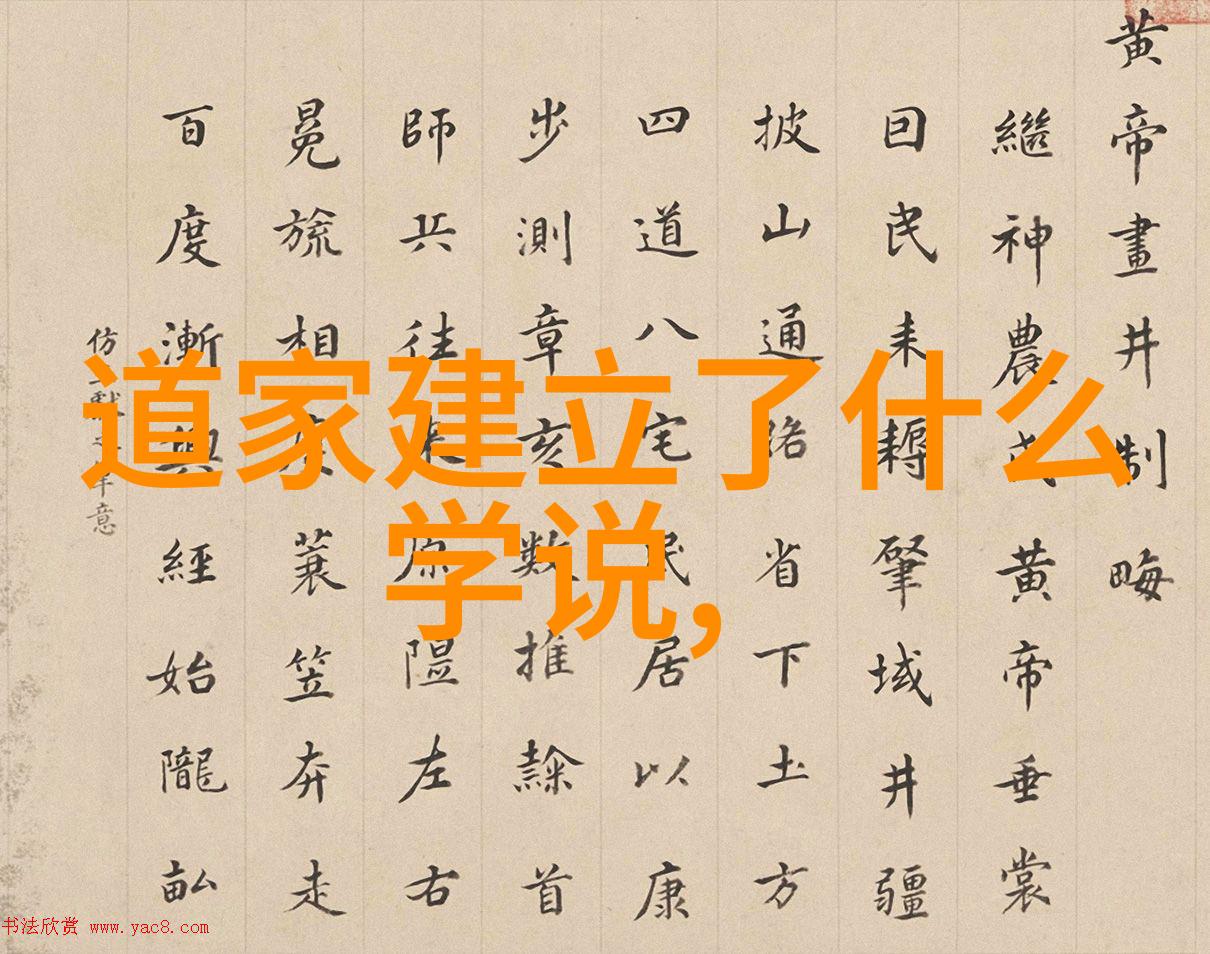 道家建立了什么
学说,
黄帝畫井制畮
繼神農氏黄帝垂裳
囙民耒耨肇域井疆
披山通路省下土方
四道八宅民居以康
步測章亥數推隸首
師兵往来原隰左右
冕旒相度蓑笠奔走
百度漸興經始隴畝
仿意
书法欣赏 www.yac8.com